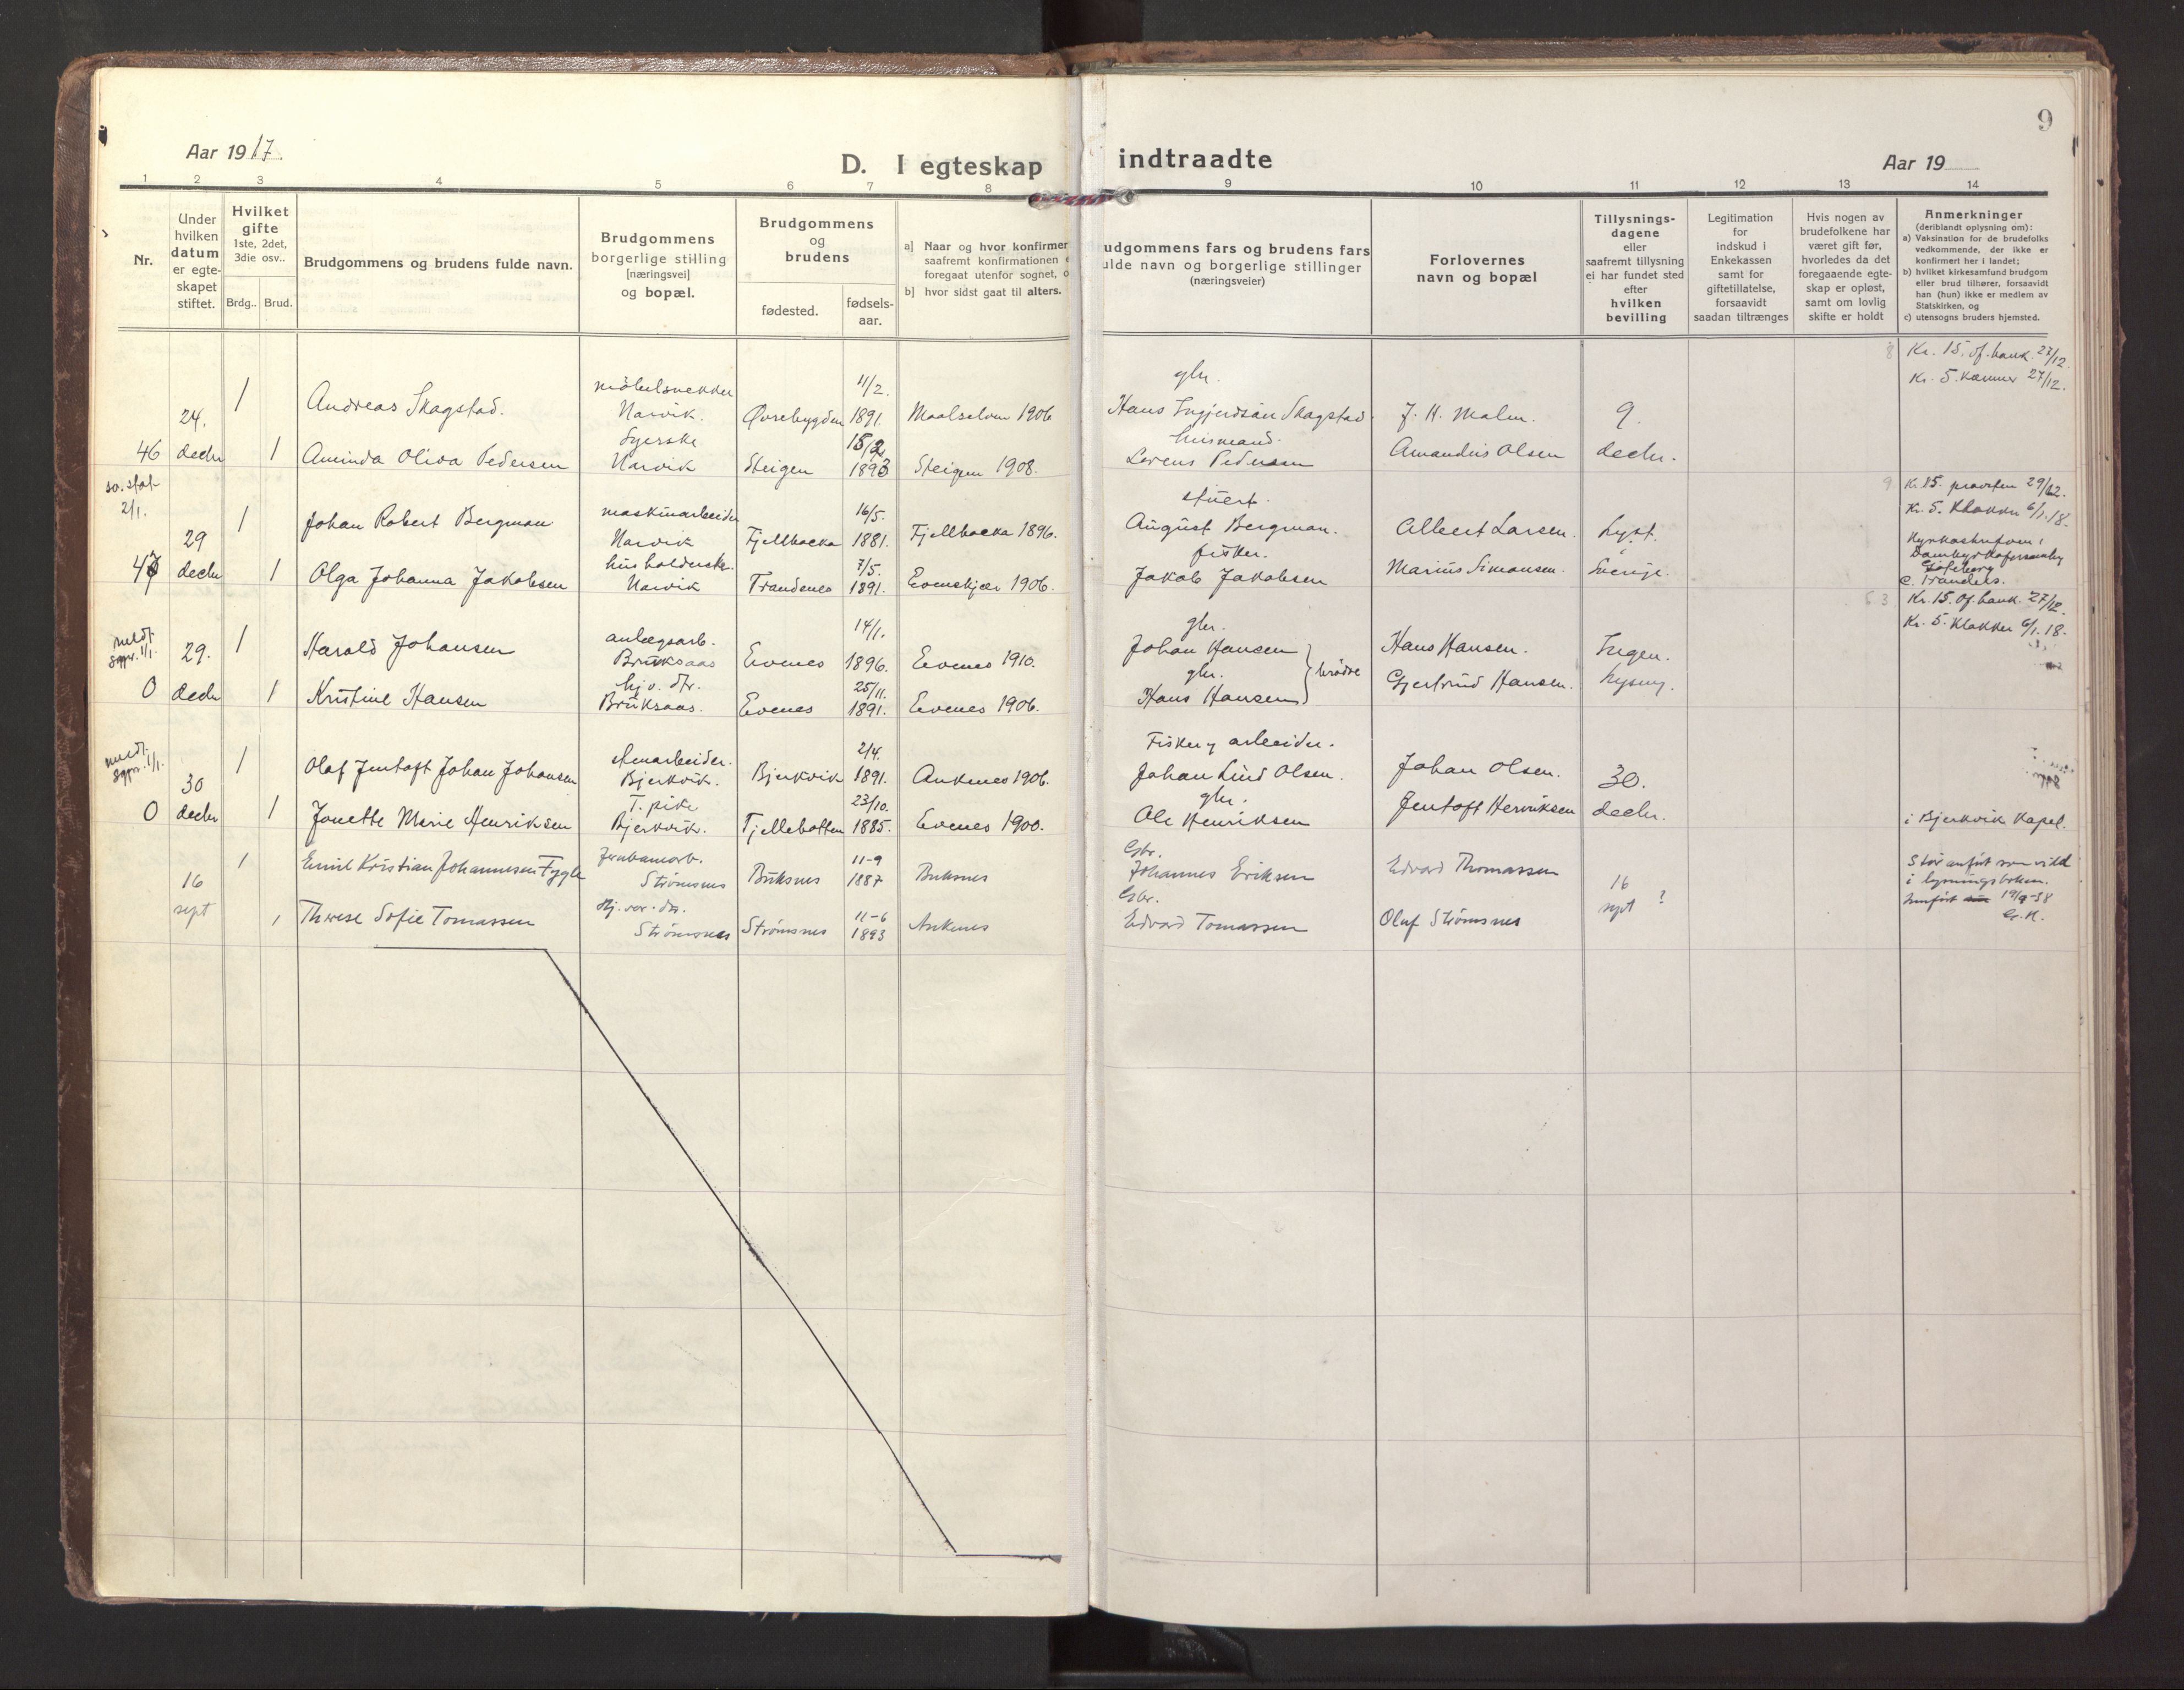 9
Aar 1917.
D. I egteskap indtraadte
Aar 19
1 2 3 4 5 6 7 8 9 10 11 12 13 14
Nr.
Under
hvilken
datum
er egte-
skapet
stiftet.
Hvilket
gifte
1ste, 2det,
3die osv..
Brdg.. Brud.
Brudgommens og brudens fulde navn.
Brudgommens
borgerlige stilling
[næringsvei]
og bopæl.
Brudgommens
og
brudens
fødested.
fødsels-
aar.
a] Naar og hvor konfirmer
saafremt konfirmationen
foregaat utenfor sognet, o
b] hvor sidst gaat til alters.
udgommens fars og brudens fars
ulde navn og borgerlige stillinger
(næringsveier)
Forlovernes
navn og bopæl
Tillysnings-
dagene
eller
saafremt tillysning
ei har fundet sted
efter
hvilken
bevilling
Legitimation
for
indskud i
Enkekassen
samt for
giftetillatelse,
forsaavidt
saadan tiltrænges
Hvis nogen av
brudefolkene har
været gift før,
hvorledes da det
foregaaende egte-
skap er opløst,
samt om lovlig
skifte er holdt
Anmerkninger
(deriblandt oplysning om):
a) Vaksination for de brudefolks
vedkommende, der ikke er
konfirmert her i landet;
b) hvilket kirkesamfund brudgom
eller brud tilhører, forsaavidt
han (hun) ikke er medlem av
Statskirken, og
c) utensogns bruders hjemsted.
8 Kr. 15. of. bank. 27/12.
Kr. 5. kæmner 27/12.
møbelsnekker 4/2. gbr.
24. 1 Andreas Skagstad. Narvik. Øvrebygden 1891. Maalselven 1906 Hans Ingjerdsen Skagstad. J. H. Malm. 9.
Syerske 15/2 husmand.
46 decbr 1 Aminda Oliva Pedersen Narvik Steigen 1893 Steigen 1908. Lorens Pedersen Amandus Olsen decbr.
so. stat. 2/1.
9. Kr. 85. prousten 29/12.
Kr. 5. Klokker 6/1.18.
maskinarbeider 16/5. stuert.
29 1 Johan Robert Bergman Narvik Fjellbacka 1881. Fjellbacka 1896. August Bergman. Albert Larsen. Lyst.
husholderske. 7/5. fisker.
47 decbr 1 Olga Johanna Jakobsen Narvik Trandenes 1891. Evenskjær 1906. Jakob Jakobsen Marius Simonsen. i Sverige.
Göteborg
c. Trandens.
Kr. 15. of. bank. 27/12.
Kr. 5. Klokker 6/1.18.
meldt sgpr. 1/1.
anlægsarb. 14/1. gbr.
29. 1 Harald Johansen Bruksaas Evenes 1896. Evenes 1910. Johan Hansen Hans Hansen. Ingen.
hj.v. dtr. 25/11. gbr. brødre
0 decbr 1 Kristine Hansen Bruksaas. Evenes 1891. Evenes 1906. Hans Hansen Gjertrud Hansen. lysning.
meldt sgpr. 1/1.
stenarbeider. 2/4. Fisker og arbeider.
30 1 Olaf Jentoft Johan Johansen Bjerkvik. Bjerkvik 1891. Ankenes 1906. Johan Lind Olsen. Johan Olsen. 30.
T. pike 23/10. gbr.
0 decbr 1 Jonette Marie Henriksen Bjerkvik. Fjellebotten 1885. Evenes 1900. Ole Henriksen Jentoft Henriksen decbr. i Bjerkvik Kapel.
Jernbanearb. 11-9 Gbr.
16 1 Emil Kristian Johannesen Fygle Strømsnes Buksnes 1887 Buksnes Johannes Eriksen Edvard Thomassen 16
Hj. vær. dtr. 11-6 Gbr.
sept 1 Therese Sofie Tomassen Strømsnes Strømsnes 1893 Ankenes Edvard Tomassen Oluf Strømsnes sept ?
Står anført som vild
i lysningsboken.
Innført 19/9-38
Gr. H.